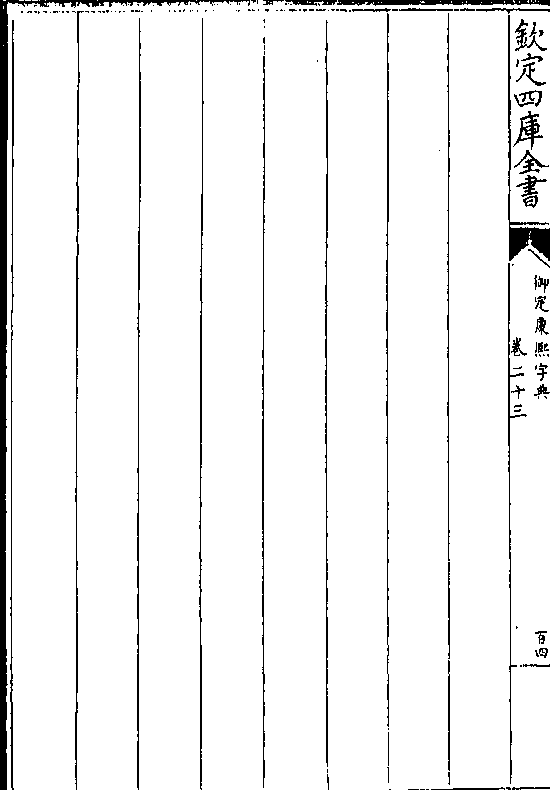 欽定四庫全書
御定康熙字典
卷二十三
百四